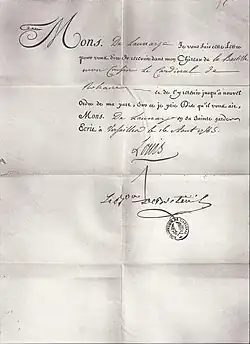 Mons. De Launay Je vous fais cette Lettre
pour vous dire de recevoir dans mon Château de la Bastille
mon Cousin le Cardinal de
Rohan
et de l'y retenir jusqu'à nouvel
Ordre de ma part. Sur ce je prie Dieu qu'il vous ait,
Mons. De Launay en sa sainte garde.
Ecrit à Versailles le 16 Aout 1785.
Louis
Le Bon de Breteuil